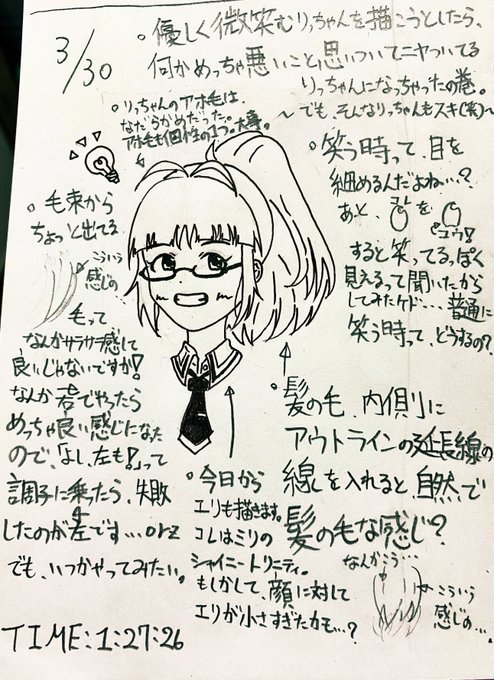 3/30
。優しく微笑むりっちゃんを描こうとしたら、
何かめっちゃ悪いこと思いついてニヤついてる
りっちゃんになっちゃったの巻。
〜でも、そんなりっちゃんもスキ(笑)〜
。りっちゃんのアホ毛は、
なだらかめだった。
アホ毛も個性の1つ。大事。
。毛束から
ちょっと出てる
こういう
感じの
毛って
なんかサラサラ感して
良いじゃないですか!
なんか右でやったら
めっちゃ良い感じになた
ので、「よし、左も!」って
調子に乗ったら、失敗
したのが左です…orz
でも、いつかやってみたい。
。笑う時って、目を
細めるんだよね…?
あと、
を
すると笑ってるっぽく
見えるって聞いたから
してみたケド…普通に
笑う時って、どうするの?
。髪の毛、内側に
アウトラインの延長線の
線を入れると、自然で
髪の毛な感じ?
なんかこう…
こういう
感じの…
。今日から
エリも描きます。
コレはミリの
シャイニートリニティ。
もしかして、顔に対して
エリが小さすぎたカモ…?
TIME:1:27:26